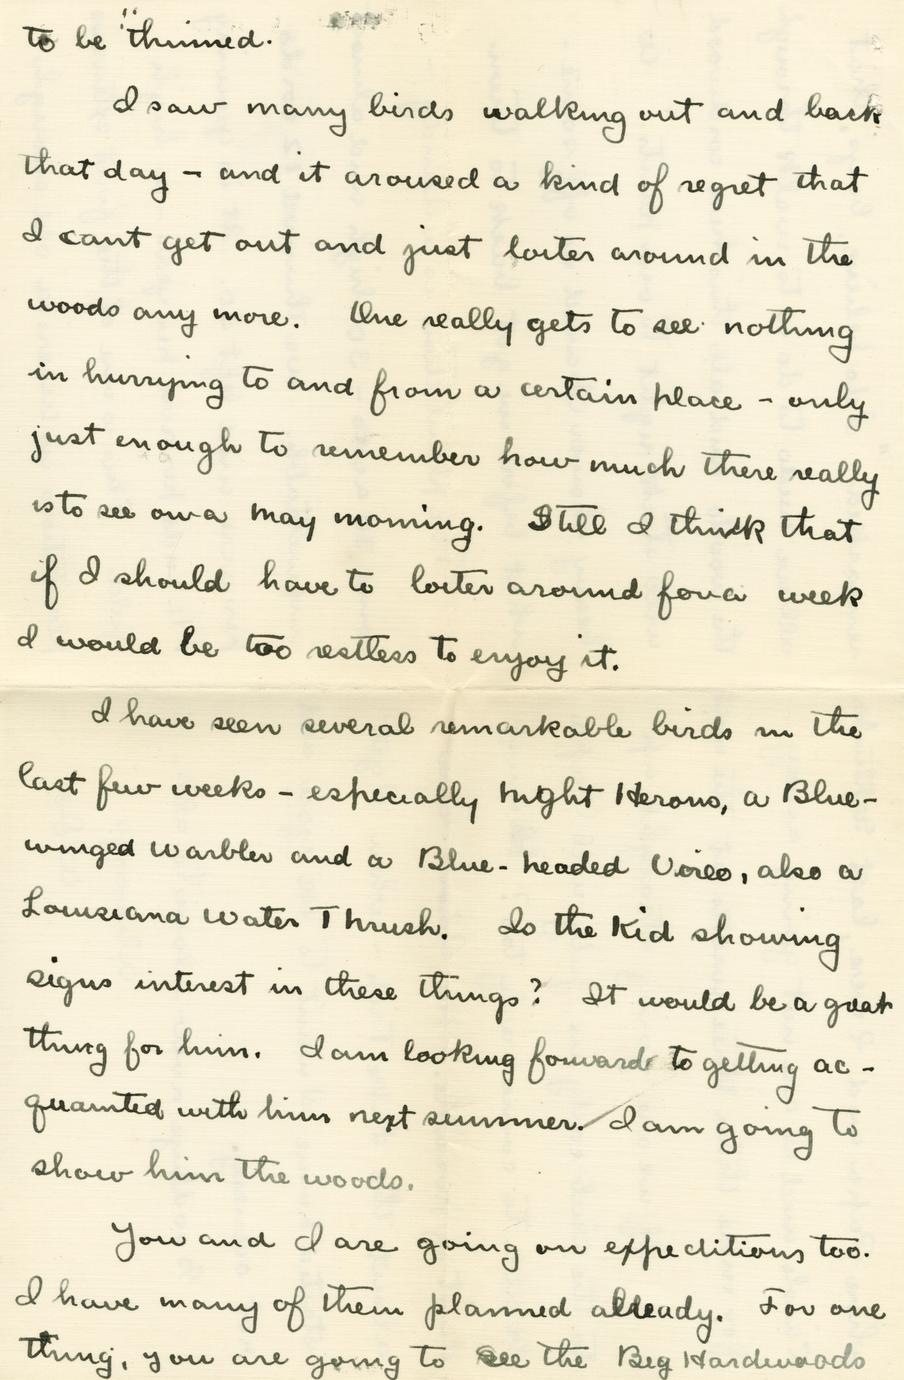 to be "thinned.
I saw many birds walking out and back
that day – and it aroused a kind of regret that
I cant get out and just loiter around in the
woods any more. One really gets to see nothing
in hurrying to and from a certain place – only
just enough to remember how much there really
is to see on a May morning. Still I think that
if I should have to loiter around for a week
I would be too restless to enjoy it.
I have seen several remarkable birds in the
last few weeks – especially Night Herons, a Blue-
winged Warbler and a Blue-headed Vireo, also a
Louisiana Water Thrush. Is the Kid showing
signs interest in these things? It would be a great
thing for him. I am looking forward to getting ac-
quainted with him next summer. I am going to
show him the woods.
You and I are going on expeditions too.
I have many of them planned already. For one
thing, you are going to see the Big Hardwoods